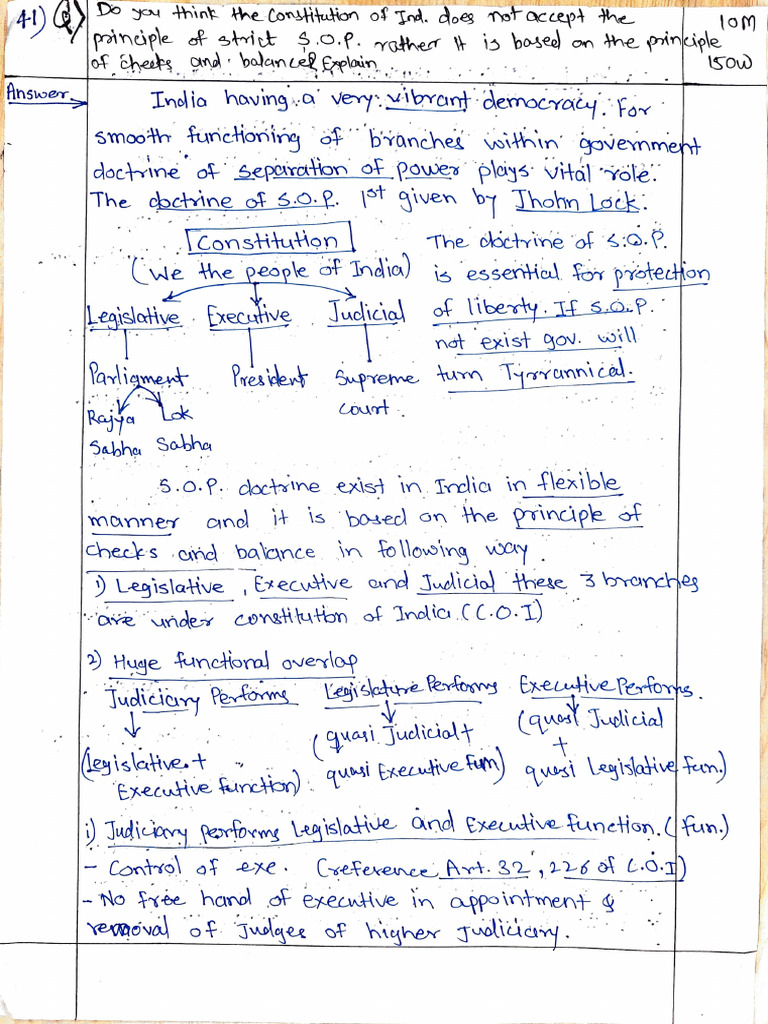 41) Q) Do you think the Constitution of Ind. does not accept the
principle of strict S.O.P. rather it is based on the principle
of checks and balances Explain
10M
150W
Answer
India having a very vibrant democracy. For
smooth functioning of branches within government
doctrine of separation of power plays vital role.
The doctrine of S.O.P. 1st given by Jhohn Lock.
Constitution
(We the people of India)
Legislative Executive Judicial
Parliament President Supreme
court.
Rajya Lok
Sabha Sabha
The doctrine of S.O.P.
is essential for protection
of liberty. If S.O.P.
not exist gov. will
turn Tyrrannical.
S.O.P. doctrine exist in India in flexible
manner and it is based on the principle of
checks and balance in following way.
1) Legislative, Executive and Judicial these 3 branches
are under constitution of India (C.O.I)
2) Huge functional overlap
Judiciary Performs Legislature Performs Executive Performs.
(Legislative +
Executive function)
(quasi Judicial +
quasi Executive fun)
(quasi Judicial
+
quasi Legislative fun.)
i) Judiciary performs Legislative and Executive function. (fun.)
- Control of exe. (reference Art. 32, 226 of C.O.I)
- No free hand of executive in appointment &
removal of Judges of higher Judiciary.